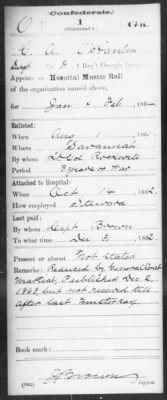 Confederate.
1
Ga.
(Construct.)
Co. D, 1 Reg't Georgia
Appears on
Hospital Muster Roll
of the organization named above,
for Jan & Feb, 186
Enlisted:
When Aug 1, 186
Where Savannah
By whom
Period 3 years or War
Attached to Hospital:
When Oct 14, 1862.
How employed Steward
Last paid:
By whom Capt Brown
To what time Dec 31, 1862.
Present or absent Not Stated
Remarks: Reduced by General Court
Martial, Published Dec 2
1862, but not received till
after last Muster day
Book mark:
(642)
Copyist.